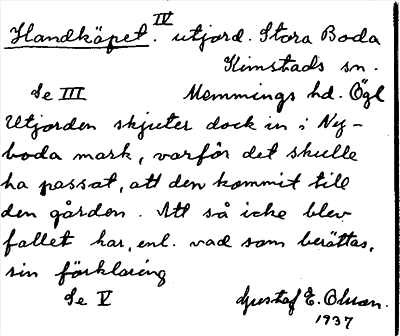 IV
Handköpet. utjord. Stora Boda
Kimstads sn.
Se III Memmings hd. Ögl
Utjorden skjuter dock in i Ny-
boda mark, varför det skulle
ha passat, att den kommit till
den gården. Att så icke blev
fallet har, enl. vad som berättas,
sin förklaring
Se V Gustaf E. Olsson.
1937